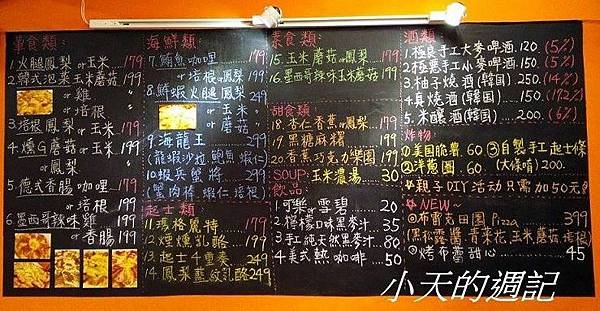 葷食類:
1.火腿鳳梨or玉米 179
2.韓式泡菜玉米蘑菇 199
or 雞 199
or 玉米 199
3.培根鳳梨or玉米 179
4.燻G蘑菇or玉米 199
or鳳梨 199
5.德式香腸咖哩 179
or培根 199
6.墨西哥辣味雞 199
or香腸 199
海鮮類:
7.鮪魚咖哩 179
or培根or鳳梨 199
8.鮮蝦火腿鳳梨 249
or玉米
or蘑菇
9.海龍王 249
(龍蝦沙拉 鮑魚 蝦仁)
10.蝦兵蟹將 249
(蟹肉棒 蝦仁 培根)
起士類
11.瑪格麗特 179
12.煙燻乳酪 199
13.起士4重奏 249
14.鳳梨藍紋乳酪 249
素食類:
15.玉米蘑菇or鳳梨 179
16.墨西哥辣味玉米蘑菇 199
甜食類
18.杏仁香蕉or鳳梨 179
19.黑糖麻糬 199
20.香蕉巧克力樂園 199
SOUP:玉米濃湯 30
飲品:
1.可樂or雪碧 20
2.檸檬口味黑麥汁 35
3.手工純天然黑麥汁 80
4.美式熱咖啡 50
酒類
1.極良手工大麥啤酒 120 (5%)
2.極惠手工小麥啤酒 150 (5%)
3.柚子燒酒(韓国) 250 (14%)
4.真燒酒(韓国) 150 (19.2%)
5.米釀酒(韓国) 200 (6%)
炸物:
①美国脆薯 60 ③自製手工起士條
②洋蔥圈 60 (大條唷) 200
★親子DIY活动只需加50元
★NEW~
◎布雷克田園Pizza 399
(黑松露醬 青菜花 玉米 蘑菇 培根)
◎烤布蕾甜心 45
小天的週記